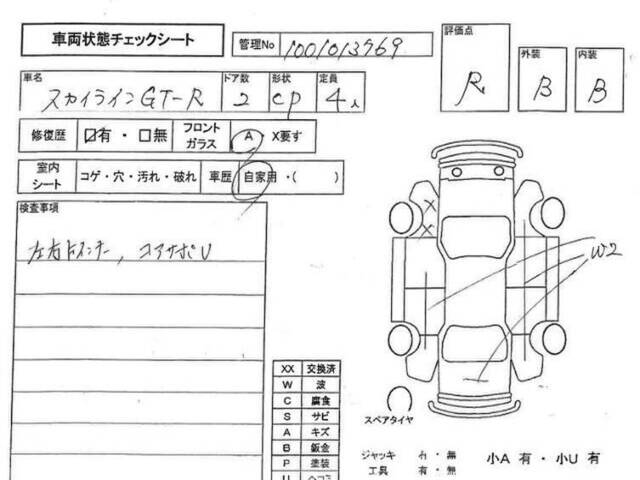 車両状態チェックシート
管理No 1001013769
評価点 R
外装 B
内装 B
車名 スカイラインGT-R
ドア数 2
形状 CP
定員 4人
修復歴 ☑有・□無
フロントガラス A・X要す
室内シート コゲ・穴・汚れ・破れ
車歴 自家用・( )
検査事項
左右Fインナー, コアサポU
X
X
W2
XX 交換済
W 波
C 腐食
S サビ
A キズ
B 鈑金
P 塗装
U ヘコミ
スペアタイヤ
ジャッキ 有・無
工具 有・無
小A 有・小U 有